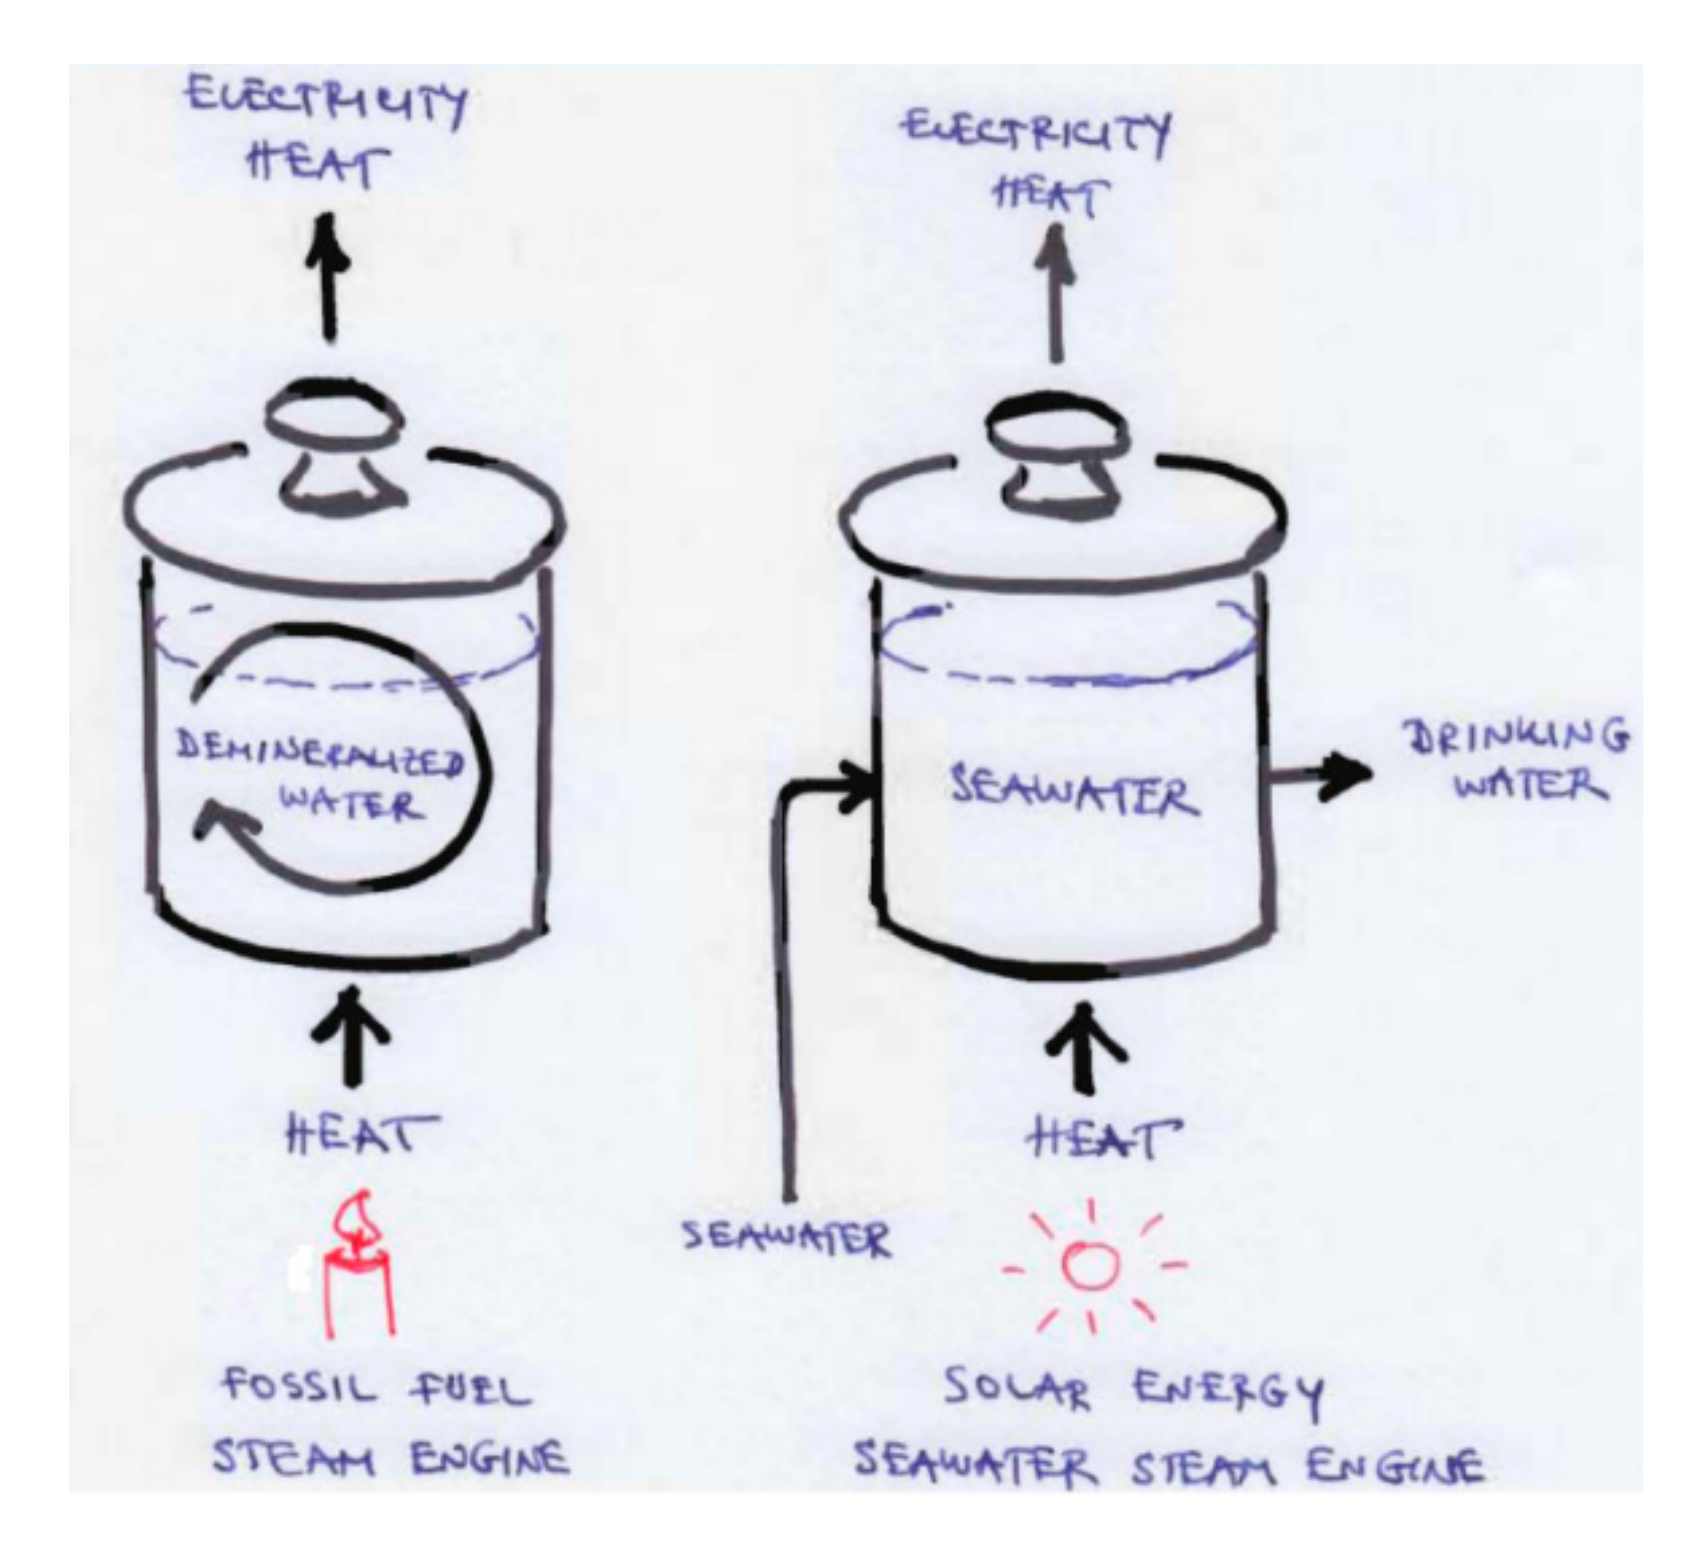 ELECTRICITY
HEAT
DEMINERALIZED
WATER
HEAT
FOSSIL FUEL
STEAM ENGINE
ELECTRICITY
HEAT
SEAWATER
DRINKING
WATER
SEAWATER
HEAT
SOLAR ENERGY
SEAWATER STEAM ENGINE